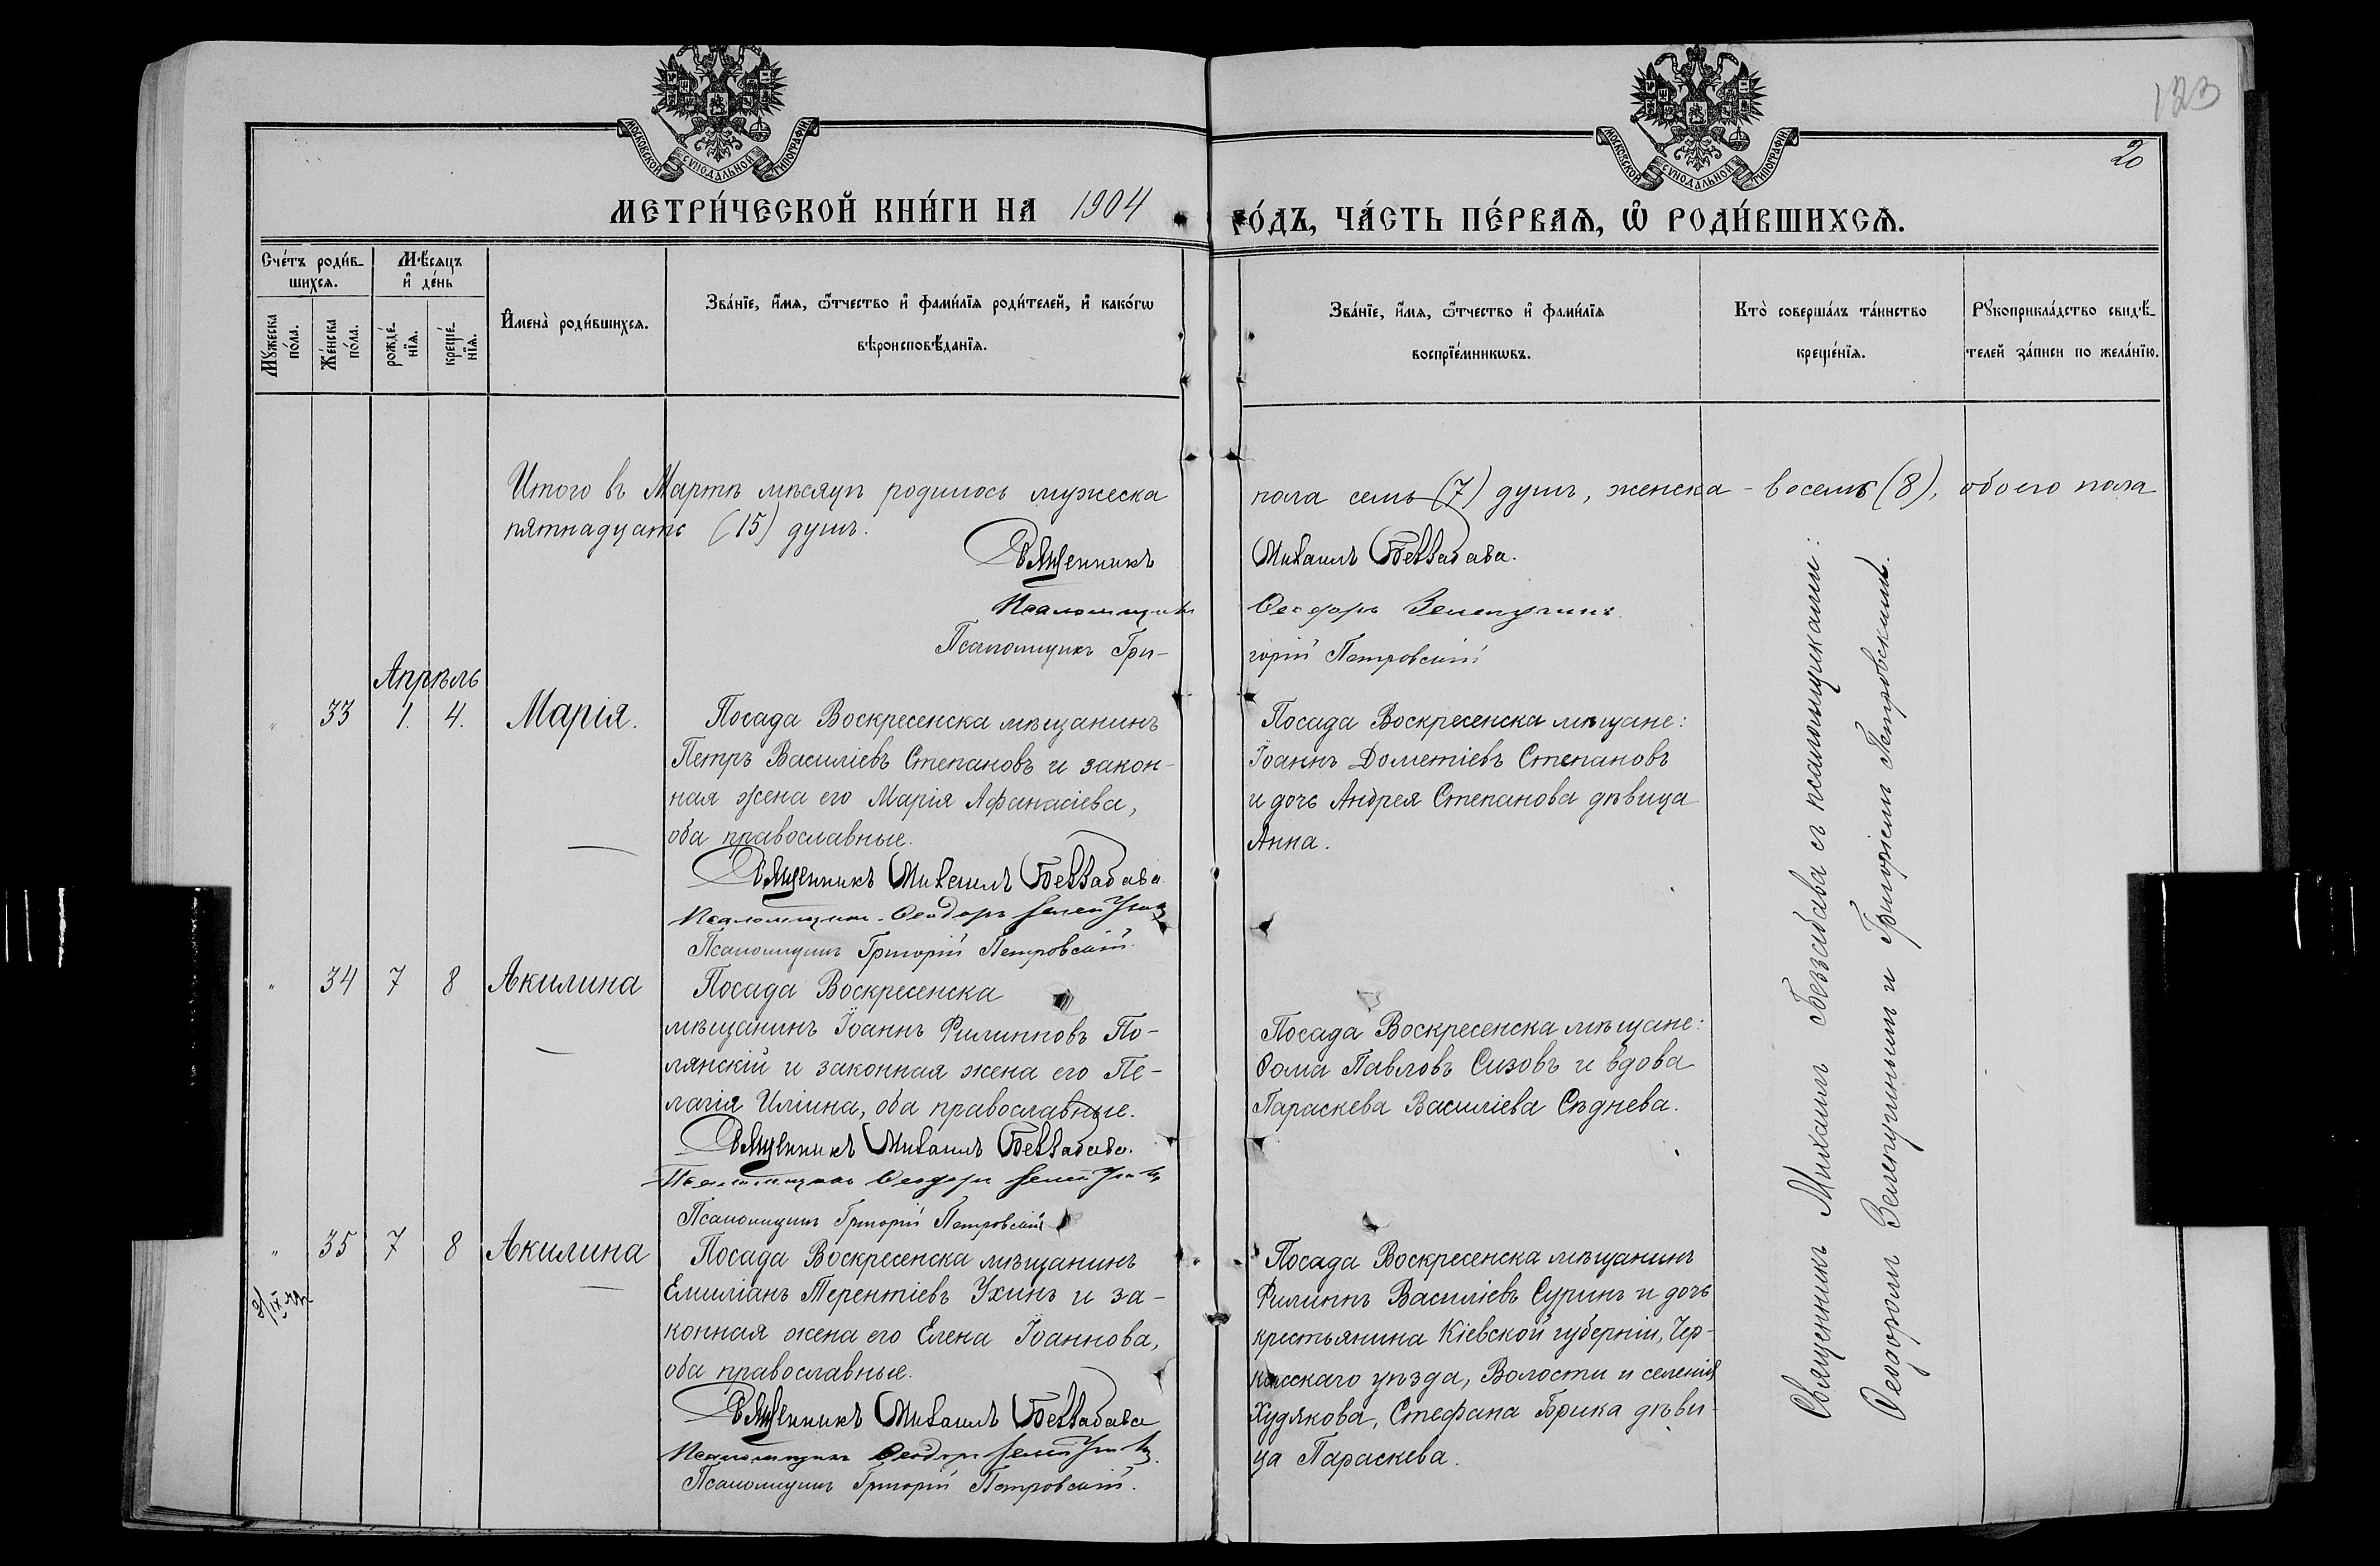 123
20
МОСКОВСКОЙ СѴНОДАЛЬНОЙ ТИПОГРАФІИ
МОСКОВСКОЙ СѴНОДАЛЬНОЙ ТИПОГРАФІИ
МЕТРИ́ЧЕСКОЙ КНИ́ГИ НА 1904
ГО́ДЪ, ЧА́СТЬ ПЕ́РВАѦ, Ѽ РОДИ́ВШИХСѦ.
Сче́тъ роди́в-
шихсѧ.
Мꙋжеска
по́ла.
Же́нска
по́ла.
Мѣ́сѧцъ
и҆ де́нь
рожде́-
нїѧ.
креще́-
нїѧ.
И҆мена̀ роди́вшихсѧ.
Зва́нїе, и҆́мѧ, ѻ҆́тчество и҆ фами́лїѧ роди́телей, и҆ како́гѡ
вѣроисповѣ́данїѧ.
Зва́нїе, и҆́мѧ, ѻ҆́тчество и҆ фами́лїѧ
воспрїе́мникѡвъ.
Кто̀ соверша́лъ та́инство
креще́нїѧ.
Рꙋкоприкла́дство свидѣ́-
телей за́писи по жела́нїю.
Итого въ Мартѣ мѣсяцѣ родилось мужеска
пола семь (7) душъ, женска - восемь (8), обоего пола
пятнадцать (15) душъ.
Священникъ
Михаилъ Беззабава.
Псаломщикъ
Ѳеодоръ Зелепугинъ
Псаломщикъ Гри-
горій Петровскій
Апрѣль
" 33 1. 4. Марія.
Посада Воскресенска мѣщанинъ
Петръ Василіевъ Степановъ и закон-
ная жена его Марія Афанасіева,
оба православные.
Священникъ Михаилъ Беззабава.
Псаломщикъ Ѳеодоръ Зелепугинъ
Псаломщикъ Григорій Петровскій.
Посада Воскресенска мѣщане:
Іоаннъ Дометіевъ Степановъ
и дочь Андрея Степанова дѣвица
Анна.
" 34 7 8 Акилина
Посада Воскресенска
мѣщанинъ Іоаннъ Филипповъ По-
лянскій и законная жена его Пе-
лагія Иліина, оба православные.
Священникъ Михаилъ Беззабава.
Псаломщикъ Ѳеодоръ Зелепугинъ
Псаломщикъ Григорій Петровскій
Посада Воскресенска мѣщане:
Ѳома Павловъ Сизовъ и вдова
Параскева Василіева Сѣднева.
" 35 7 8 Акилина
Посада Воскресенска мѣщанинъ
Емиліанъ Терентіевъ Ухинъ и за-
конная жена его Елена Іоаннова,
оба православные.
Священникъ Михаилъ Беззабава
Псаломщикъ Ѳеодоръ Зелепугинъ.
Псаломщикъ Григорій Петровскій.
Посада Воскресенска мѣщанинъ
Филиппъ Василіевъ Суринъ и дочь
крестьянина Кіевской губерніи, Чер-
касскаго уѣзда, Волости и селенія
Худякова, Стефана Брика дѣви-
ца Параскева.
Священникъ Михаилъ Беззабава съ псаломщиками:
Ѳеодоромъ Зелепугинымъ и Григоріемъ Петровскимъ.